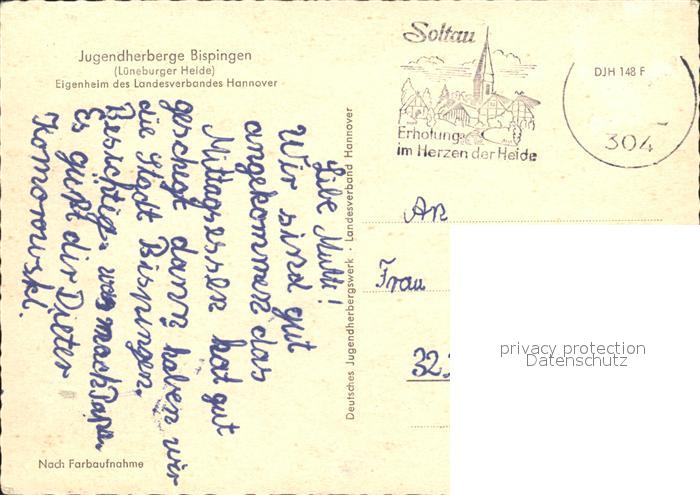 Jugendherberge Bispingen
(Lüneburger Heide)
Eigenheim des Landesverbandes Hannover
Libe Mutti!
Wir sind gut
angekommen das
Mittagessen hat gut
geschegt dann haben wir
die Stadt Bispingen
Besichtig. was mach Papa.
Es gußt dir Dieter
Komorowski.
Nach Farbaufnahme
Deutsches Jugendherbergswerk · Landesverband Hannover
Soltau
Erholung
im Herzen der Heide
DJH 148 F
304
An
Frau
32
privacy protection
Datenschutz